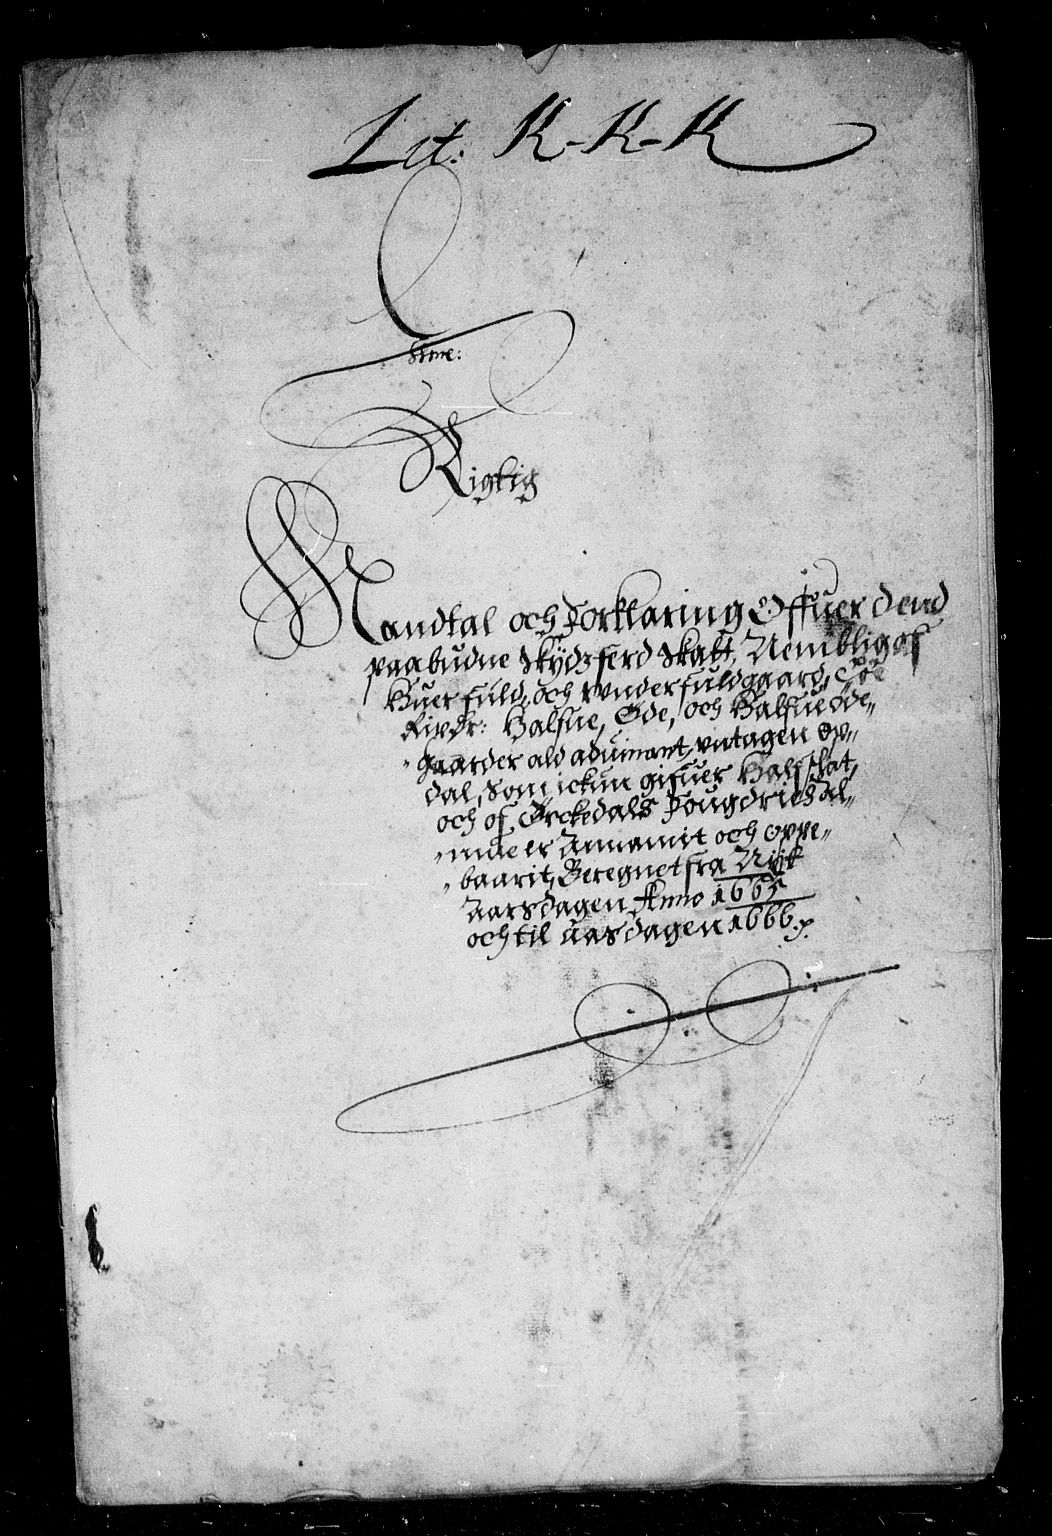 Lit: K-K-K
Rigtig
Mandtal och Forklaring Offuer dend
paabudne Skÿdzferd Skatt, Nemblig af
Huer fuld, och rynder fuldgaard, Toe
Rixdr: Halfue, Øde, och Halfue øde„
„gaarder ald aduinant, vntagen Op„
dal, Som ickun gifuer Half skat,
och af Orckedals Fougdrie Sal„
„mue er Annamit och oppe„
„baarit, Beregnet fra Nÿt
Aarsdagen Anno 1665
och til Aarsdagen 1666